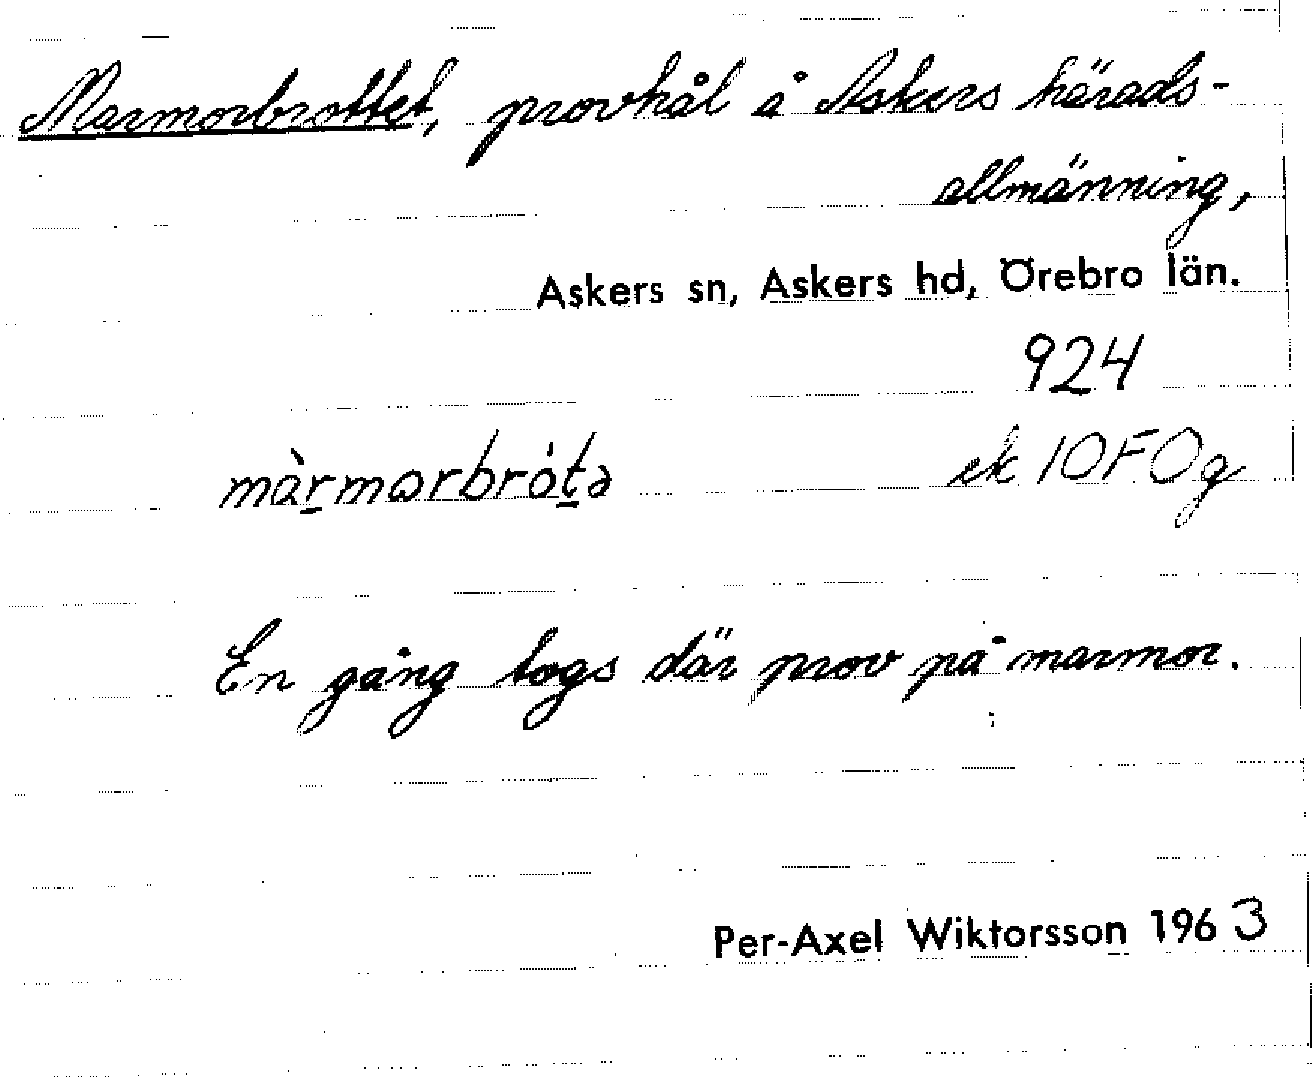 Marmorbrottet, provhål å Askers härads-
allmänning,
Askers sn, Askers hd, Örebro län.
924
màrmorbrót̲ə ek 10F0g
En gång togs där prov på marmor.
Per-Axel Wiktorsson 1963